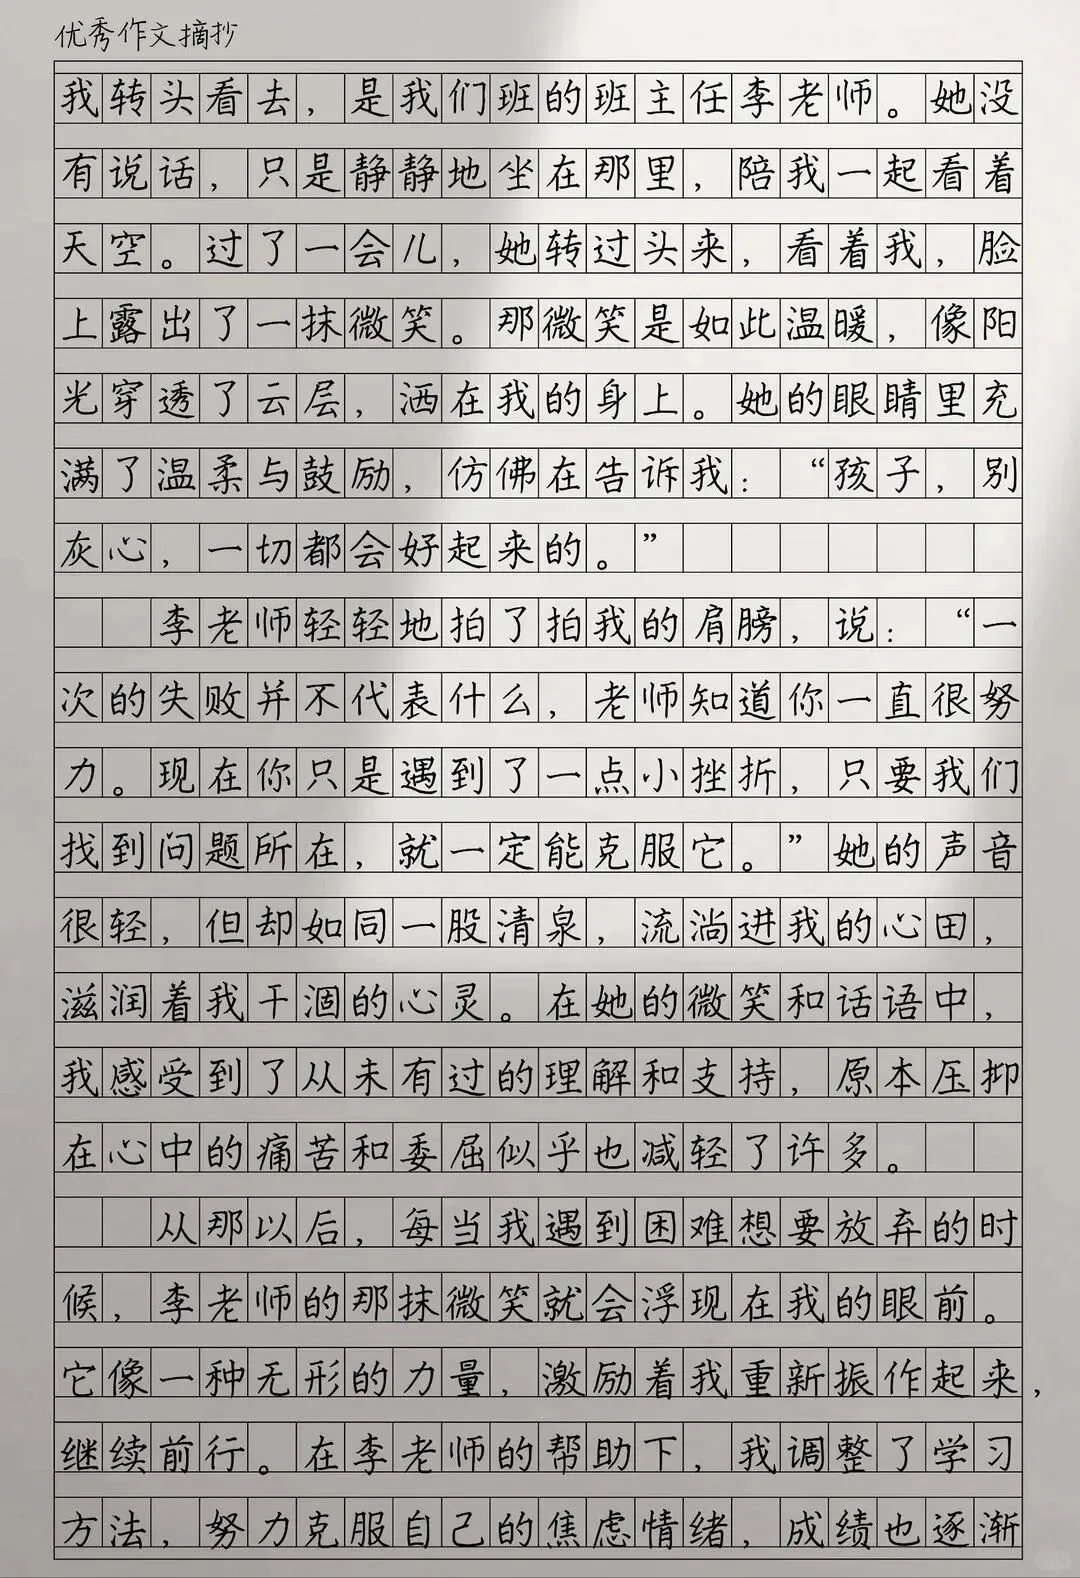 优秀作文摘抄
我转头看去，是我们班的班主任李老师。她没
有说话，只是静静地坐在那里，陪我一起看着
天空。过了一会儿，她转过头来，看着我，脸
上露出了一抹微笑。那微笑是如此温暖，像阳
光穿透了云层，洒在我的身上。她的眼睛里充
满了温柔与鼓励，仿佛在告诉我：“孩子，别
灰心，一切都会好起来的。”
李老师轻轻地拍了拍我的肩膀，说：“一
次的失败并不代表什么，老师知道你一直很努
力。现在你只是遇到了一点小挫折，只要我们
找到问题所在，就一定能克服它。”她的声音
很轻，但却如同一股清泉，流淌进我的心田，
滋润着我干涸的心灵。在她的微笑和话语中，
我感受到了从未有过的理解和支持，原本压抑
在心中的痛苦和委屈似乎也减轻了许多。
从那以后，每当我遇到困难想要放弃的时
候，李老师的那抹微笑就会浮现在我的眼前。
它像一种无形的力量，激励着我重新振作起来，
继续前行。在李老师的帮助下，我调整了学习
方法，努力克服自己的焦虑情绪，成绩也逐渐